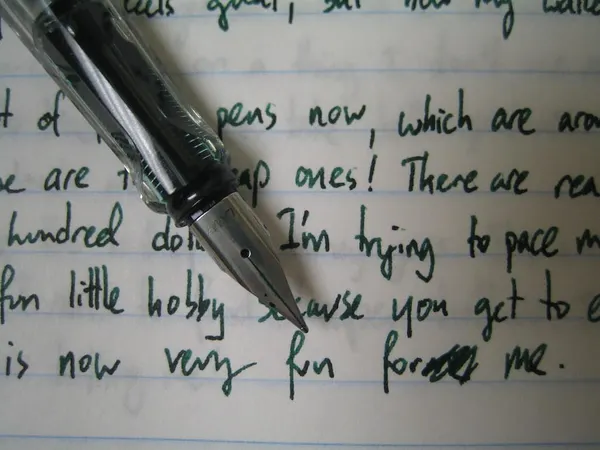 feels good, but now my
of pens now, which are
are ones! There are
hundred I'm trying to pace
fun little hobby because you get to
is now very fun for me.